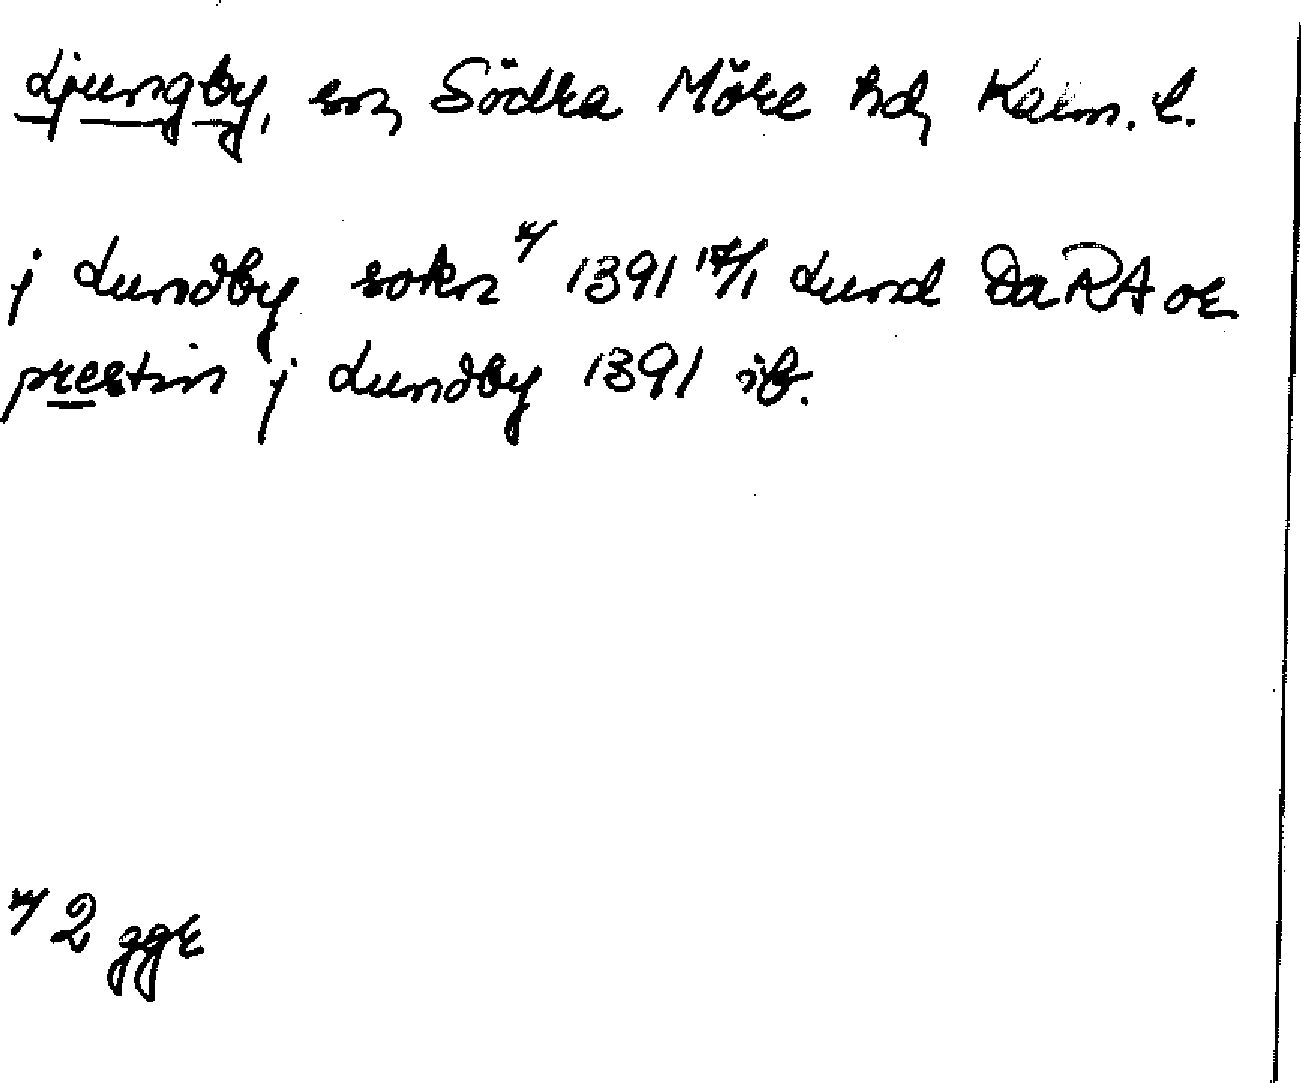 Ljungby, sn, Södra Möre hd, Kalm. l.
j Lundby sokn x/ 1391 17/1 Lund DaRA or
prestin j Lundby 1391 ib.
x/ 2 ggr